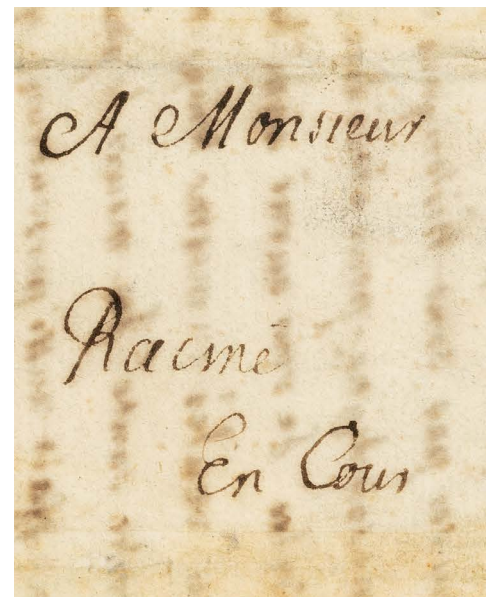 A Monsieur
Racine
En Cour